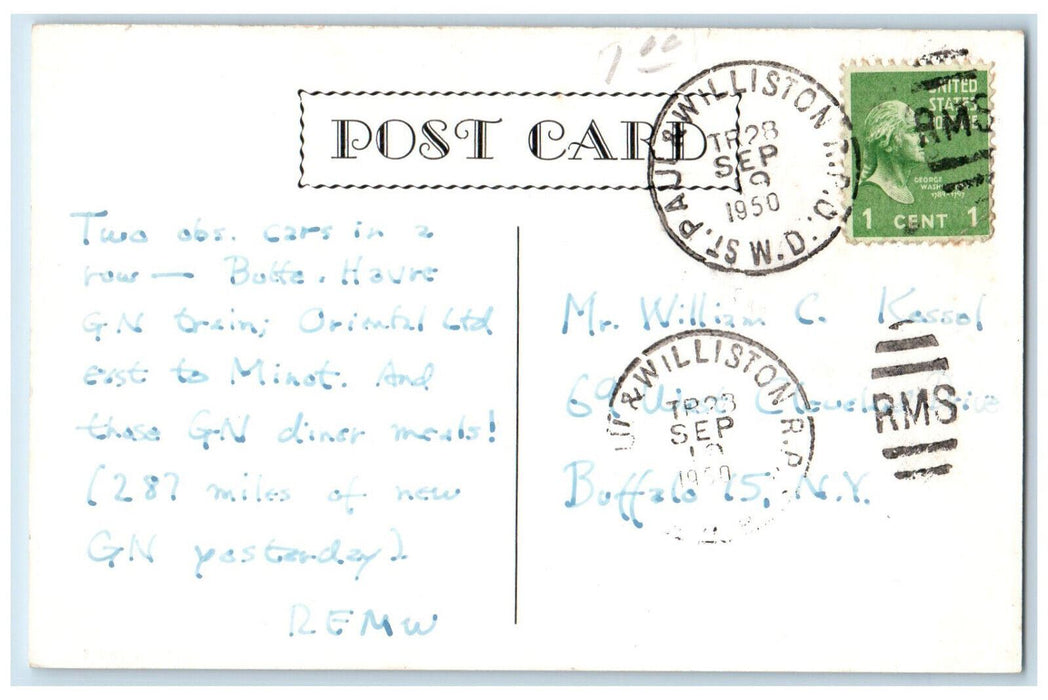 7.00
POST CARD
ST. PAUL & WILLISTON R.P.O. W.D.
TR28
SEP
1950
UNITED
STATES
RMS
GEORGE
WASHINGTON
1789-1797
1 CENT 1
Two obs. cars in a
row — Butte. Havre
GN train; Oriental Ltd
east to Minot. And
those GN diner meals!
(287 miles of new
GN yesterday)
REMW
Mr. William C. Kessel
69 West Cleveland Drive
Buffalo 15, N.Y.
& WILLISTON R.P.
TR28
SEP
1950
RMS